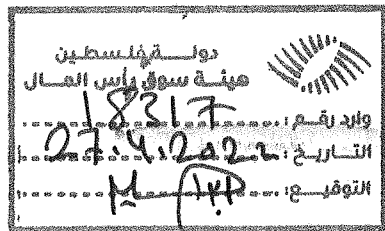 دولة فلسطين
هيئة سوق رأس المال
وارد رقم: 18317
التاريخ: 27.4.2022
التوقيع: